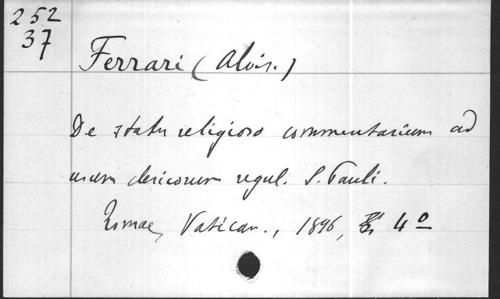 252
37
Ferrari (Alois.)
De statu religioso commentarium ad
usum clericorum regul. S. Pauli.
Romae, Vatican., 1896, 4º